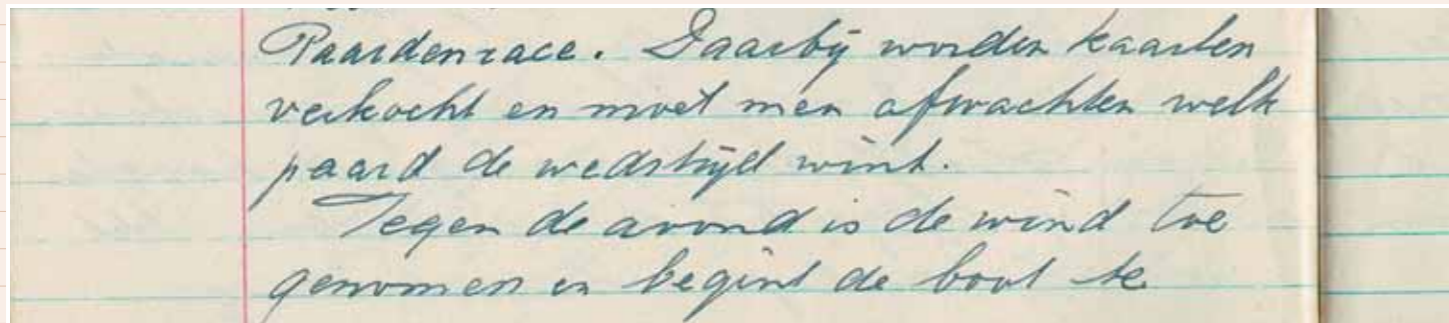 Paardenrace. Daarbij worden kaarten
verkocht en moet men afwachten welk
paard de wedstrijd wint.
Tegen de avond is de wind toe
genomen en begint de boot te